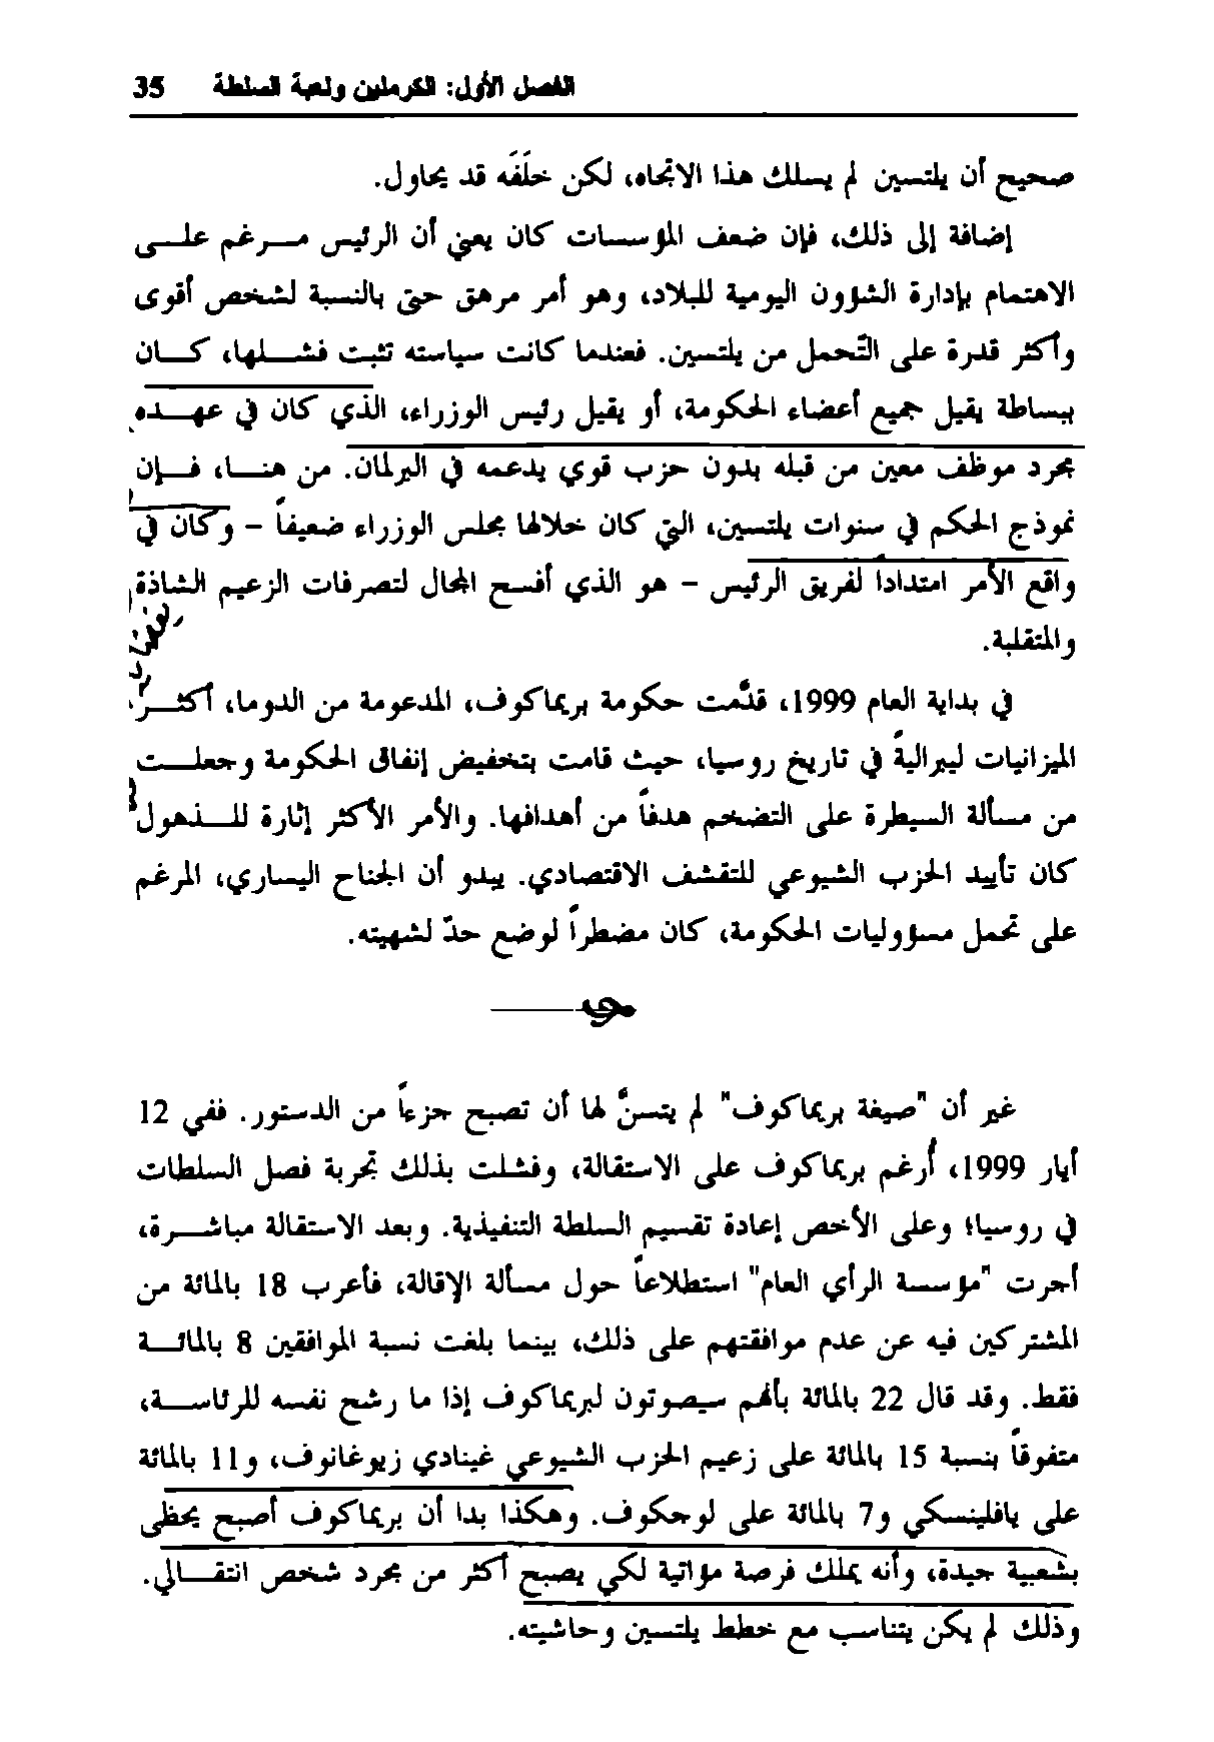 الفصل الأول: الكرملين ولعبة السلطة 35
صحيح أن يلتسين لم يسلك هذا الاتجاه، لكن خلَفَه قد يحاول.
إضافة إلى ذلك، فإن ضعف المؤسسات كان يعني أن الرئيس مـرغم علـى
الاهتمام بإدارة الشؤون اليومية للبلاد، وهو أمر مرهق حتى بالنسبة لشخص أقوى
وأكثر قدرة على التَّحمل من يلتسين. فعندما كانت سياسته تثبت فشـلها، كـان
ببساطة يقيل جميع أعضاء الحكومة، أو يقيل رئيس الوزراء، الذي كان في عهـده
مجرد موظف معين من قبله بدون حزب قوي يدعمه في البرلمان. من هنـا، فـإن
نموذج الحكم في سنوات يلتسين، التي كان خلالها مجلس الوزراء ضعيفاً – وكان في
واقع الأمر امتداداً لفريق الرئيس – هو الذي أفسح المجال لتصرفات الزعيم الشاذة
والمتقلبة.
في بداية العام 1999، قدَّمت حكومة بريماكوف، المدعومة من الدوما، أكثـر
الميزانيات ليبراليةً في تاريخ روسيا، حيث قامت بتخفيض إنفاق الحكومة وجعلـت
من مسألة السيطرة على التضخم هدفاً من أهدافها. والأمر الأكثر إثارة للـذهول
كان تأييد الحزب الشيوعي للتقشف الاقتصادي. يبدو أن الجناح اليساري، المرغم
على تحمل مسؤوليات الحكومة، كان مضطراً لوضع حدّ لشهيته.
غير أن "صيغة بريماكوف" لم يتسنَّ لها أن تصبح جزءاً من الدستور. ففي 12
أيار 1999، أُرغم بريماكوف على الاستقالة، وفشلت بذلك تجربة فصل السلطات
في روسيا؛ وعلى الأخص إعادة تقسيم السلطة التنفيذية. وبعد الاستقالة مباشـرة،
أجرت "مؤسسة الرأي العام" استطلاعاً حول مسألة الإقالة، فأعرب 18 بالمائة من
المشتركين فيه عن عدم موافقتهم على ذلك، بينما بلغت نسبة الموافقين 8 بالمائـة
فقط. وقد قال 22 بالمائة بأنهم سيصوتون لبريماكوف إذا ما رشح نفسه للرئاسـة،
متفوقاً بنسبة 15 بالمائة على زعيم الحزب الشيوعي غينادي زيوغانوف، و11 بالمائة
على يافلينسكي و7 بالمائة على لوجكوف. وهكذا بدا أن بريماكوف أصبح يحظى
بشعبية جيدة، وأنه يملك فرصة مؤاتية لكي يصبح أكثر من مجرد شخص انتقـالي.
وذلك لم يكن يتناسب مع خطط يلتسين وحاشيته.